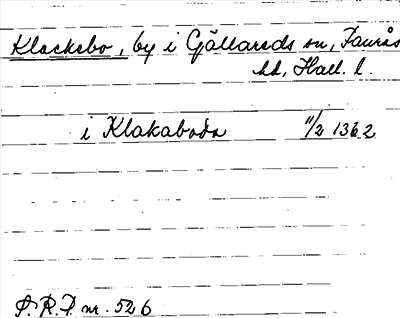 Klackebo, by i Gällareds sn, Faurås
hd, Hall. l.
i Klakaboda 11/2 1362
S.R.P. nr. 526